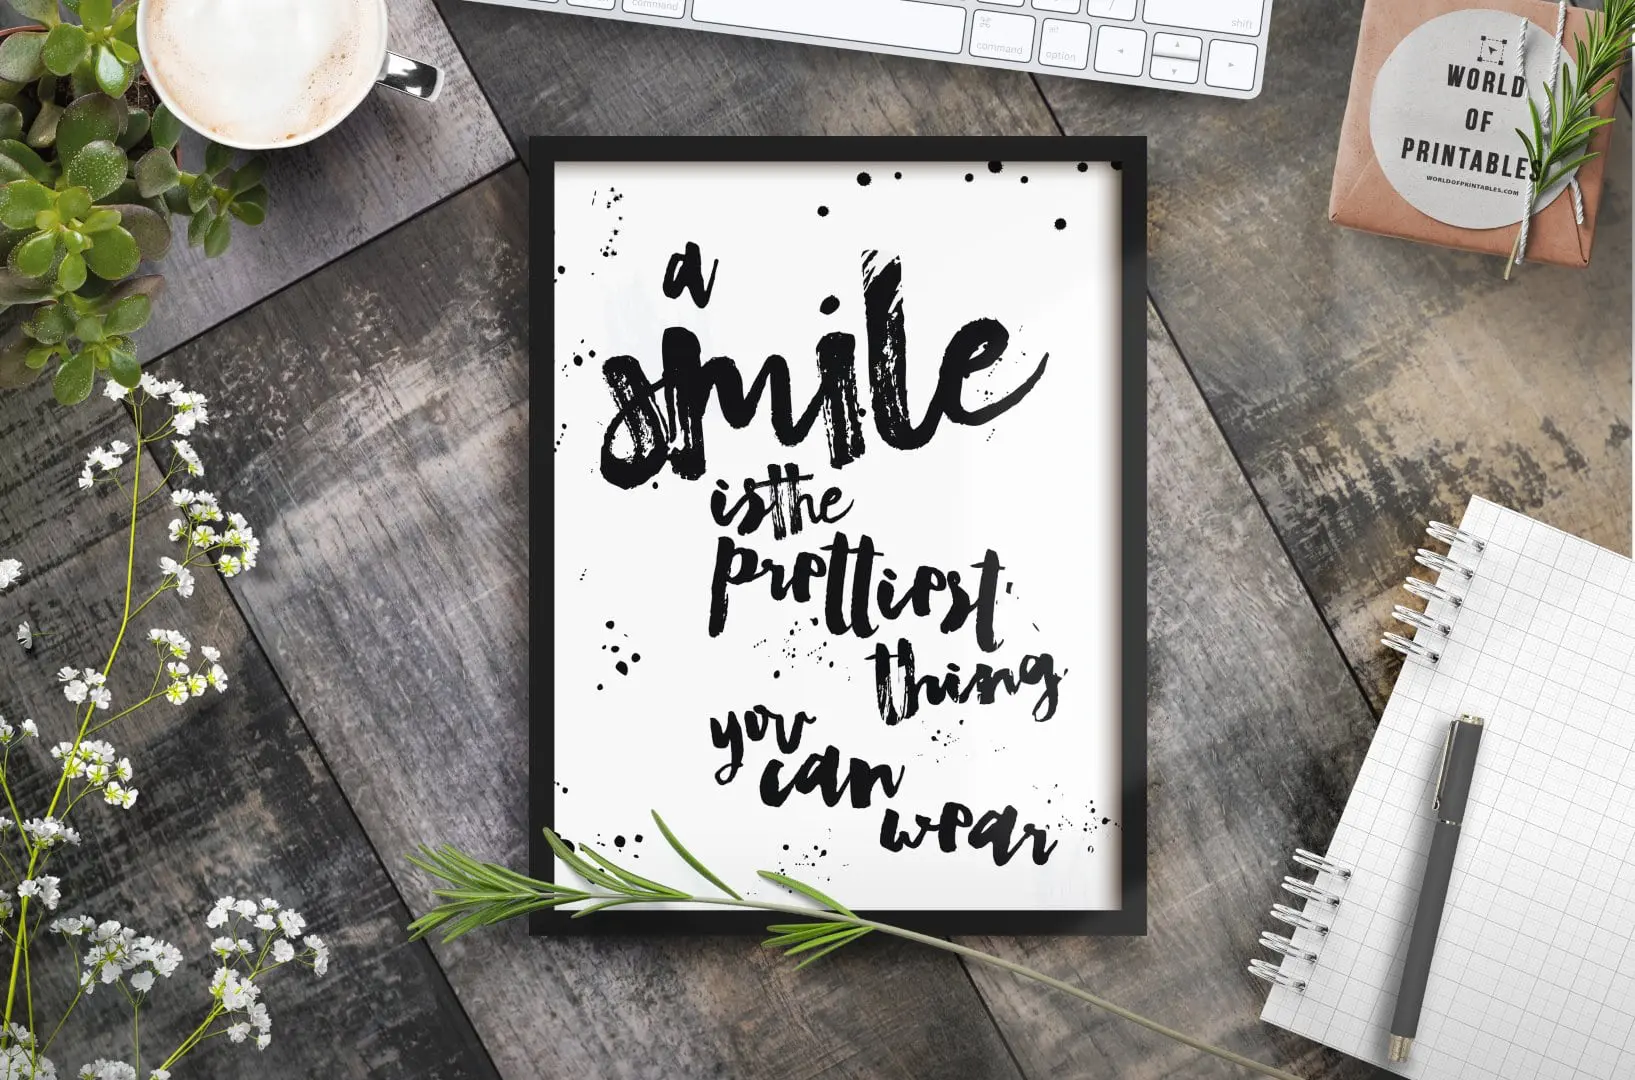 command
⌘
command
alt
option
shift
WORLD
OF
PRINTABLES
WORLDOFPRINTABLES.COM
a
smile
is the
prettiest
thing
you
can
wear